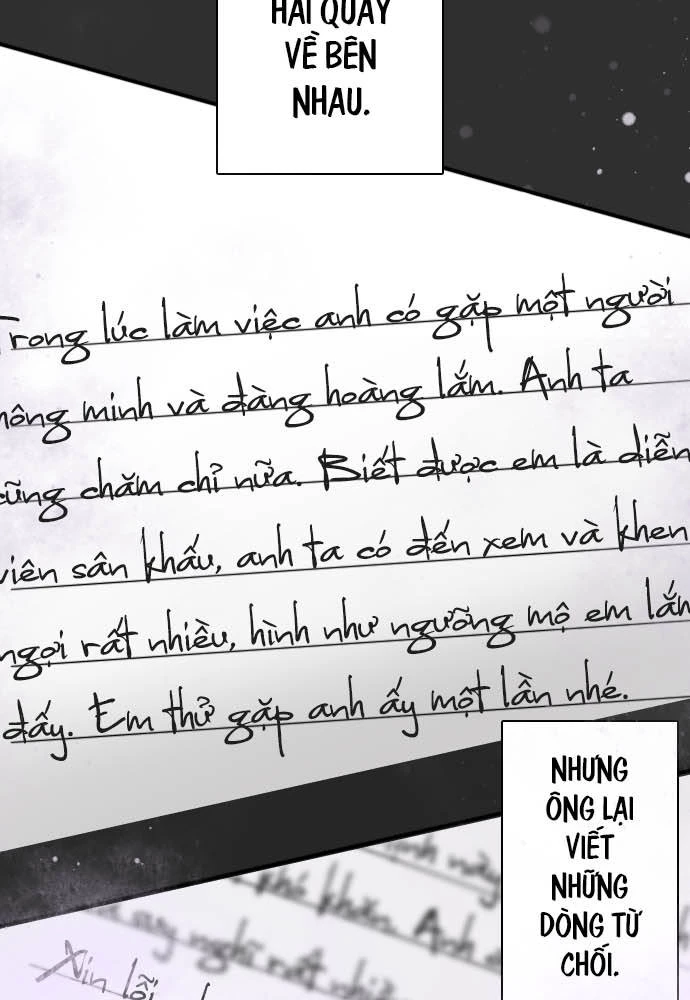 HAI QUAY
VỀ BÊN
NHAU.
Trong lúc làm việc anh có gặp một người
thông minh và đàng hoàng lắm. Anh ta
cũng chăm chỉ nữa. Biết được em là diễn
viên sân khấu, anh ta có đến xem và khen
ngợi rất nhiều, hình như ngưỡng mộ em lắm
đấy. Em thử gặp anh ấy một lần nhé.
NHƯNG
ÔNG LẠI
VIẾT
NHỮNG
DÒNG TỪ
CHỐI.
này
phê phán. Anh
suy nghĩ rất nhiều
Xin lỗi